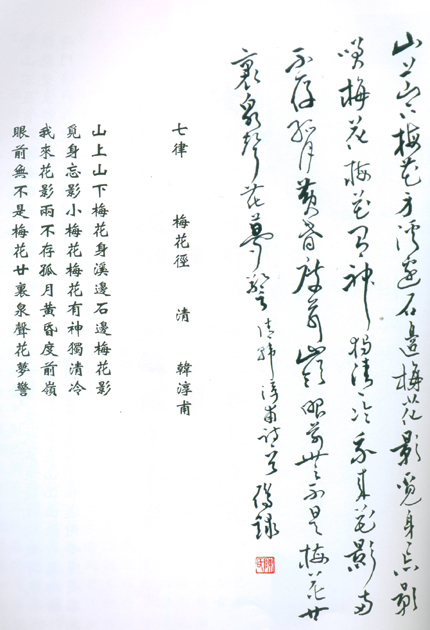 山上山下梅花身溪邊石邊梅花影覓身忘影
梅花梅花有神獨清冷我來花影兩
不存孤月黃昏度前嶺眼前無不是梅花廿
裏泉聲花夢警 清韓淳甫詩 錄
七律 梅花徑 清 韓淳甫
山上山下梅花身溪邊石邊梅花影
覓身忘影小梅花梅花有神獨清冷
我來花影兩不存孤月黃昏度前嶺
眼前無不是梅花廿裏泉聲花夢警